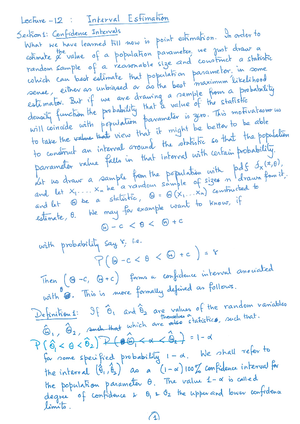 Lecture -12 : Interval Estimation
Section 1: Confidence Intervals
What we have learned till now is point estimation. In order to
estimate the value of a population parameter, we just draw a
random sample of a reasonable size and construct a statistic
which can best estimate that population parameter in some
sense, either as unbiased or as the best maximum likelihood
estimator. But if we are drawing a sample from a probability
density function the probability that a value of the statistic
will coincide with population parameter is zero. This motivates us
to take the view that it might be better to be able
to construct an interval around the statistic so that the population
parameter value falls in that interval with certain probability.
Let us draw a sample from the population with pdf fx(x,θ),
and let X₁, ... Xn be a random sample of size n drawn from it.
and let Θ be a statistic, Θ = Θ(X₁, ... Xn) constructed to
estimate, θ. We may for example want to know, if
Θ - c < θ < Θ + c
with probability say γ, i.e.
P(Θ - c < θ < Θ + c) = γ
Then (Θ - c, Θ + c) forms a confidence interval associated
with θ. This is more formally defined as follows.
Definition 1: If θ̂₁ and θ̂₂ are values of the random variables
Θ̂₁, Θ̂₂, which are statistics, such that.
P(Θ̂₁ < θ < Θ̂₂) = 1-α
for some specified probability 1-α. We shall refer to
the interval (θ̂₁, θ̂₂) as a (1-α)100% confidence interval for
the population parameter θ. The value 1-α is called
degree of confidence & θ̂₁ & θ̂₂ the upper and lower confidence
limits.
(1)